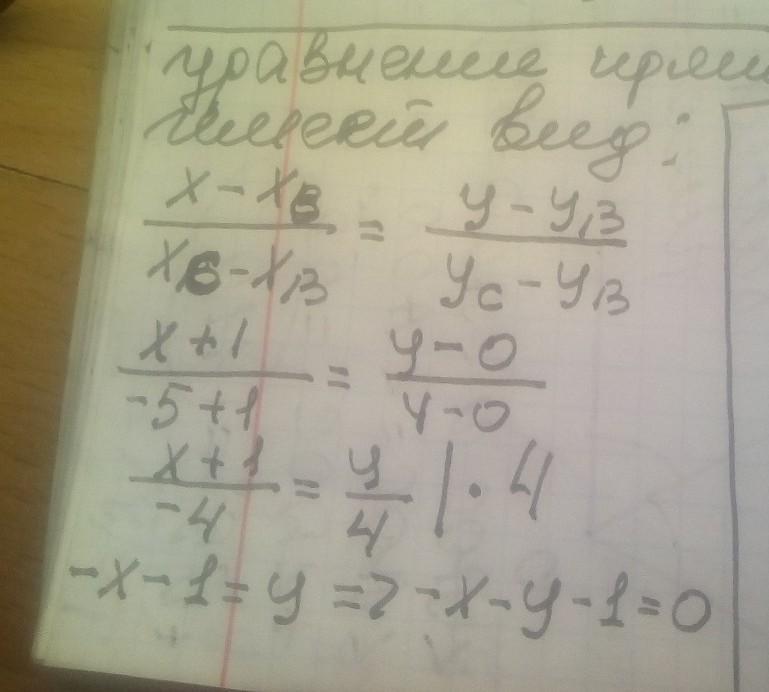 уравнение прям
имеет вид:
x - x_B / x_C - x_B = y - y_B / y_C - y_B
x + 1 / -5 + 1 = y - 0 / 4 - 0
x + 1 / -4 = y / 4 | · 4
-x - 1 = y => -x - y - 1 = 0